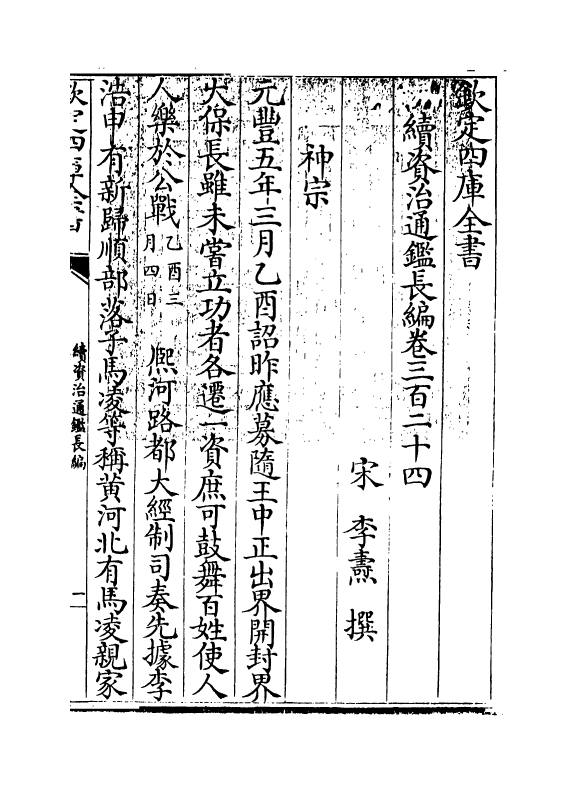 欽定四庫全書
續資治通鑑長編卷三百二十四
宋 李燾 撰
神宗
元豐五年三月乙酉詔昨應募隨王中正出界開封界
大保長雖未嘗立功者各遷一資庶可鼓舞百姓使人
人樂於公戰乙酉三
月四日熈河路都大經制司奏先據李
浩申有新歸順部落子馬凌等稱黄河北有馬凌親家
欽定四庫全書
續資治通鑑長編